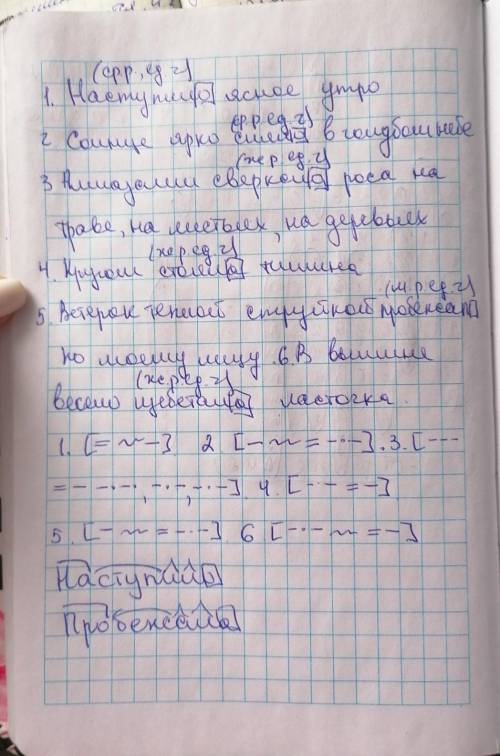 (ср.р., ед.ч)
1. Наступило ясное утро
(ср.р.ед.ч)
2. Солнце ярко сияло в голубом небе
(ж.р.ед.ч)
3. Алмазами сверкала роса на
траве, на листьях, на деревьях
(ж.р.ед.ч)
4. Кругом стояла тишина
(м.р.ед.ч)
5. Ветерок теплой струйкой пробежал
по моему лицу 6. В вышине
(ж.р.ед.ч)
весело щебетала ласточка.
1. [= ~ -] 2. [- ~ = -·-·]. 3. [---
= - -·-·, -·-, -·-]. 4. [-·- = -]
5. [- ~ = -·-·]. 6. [-·- ~ = -]
Наступило
Пробежала